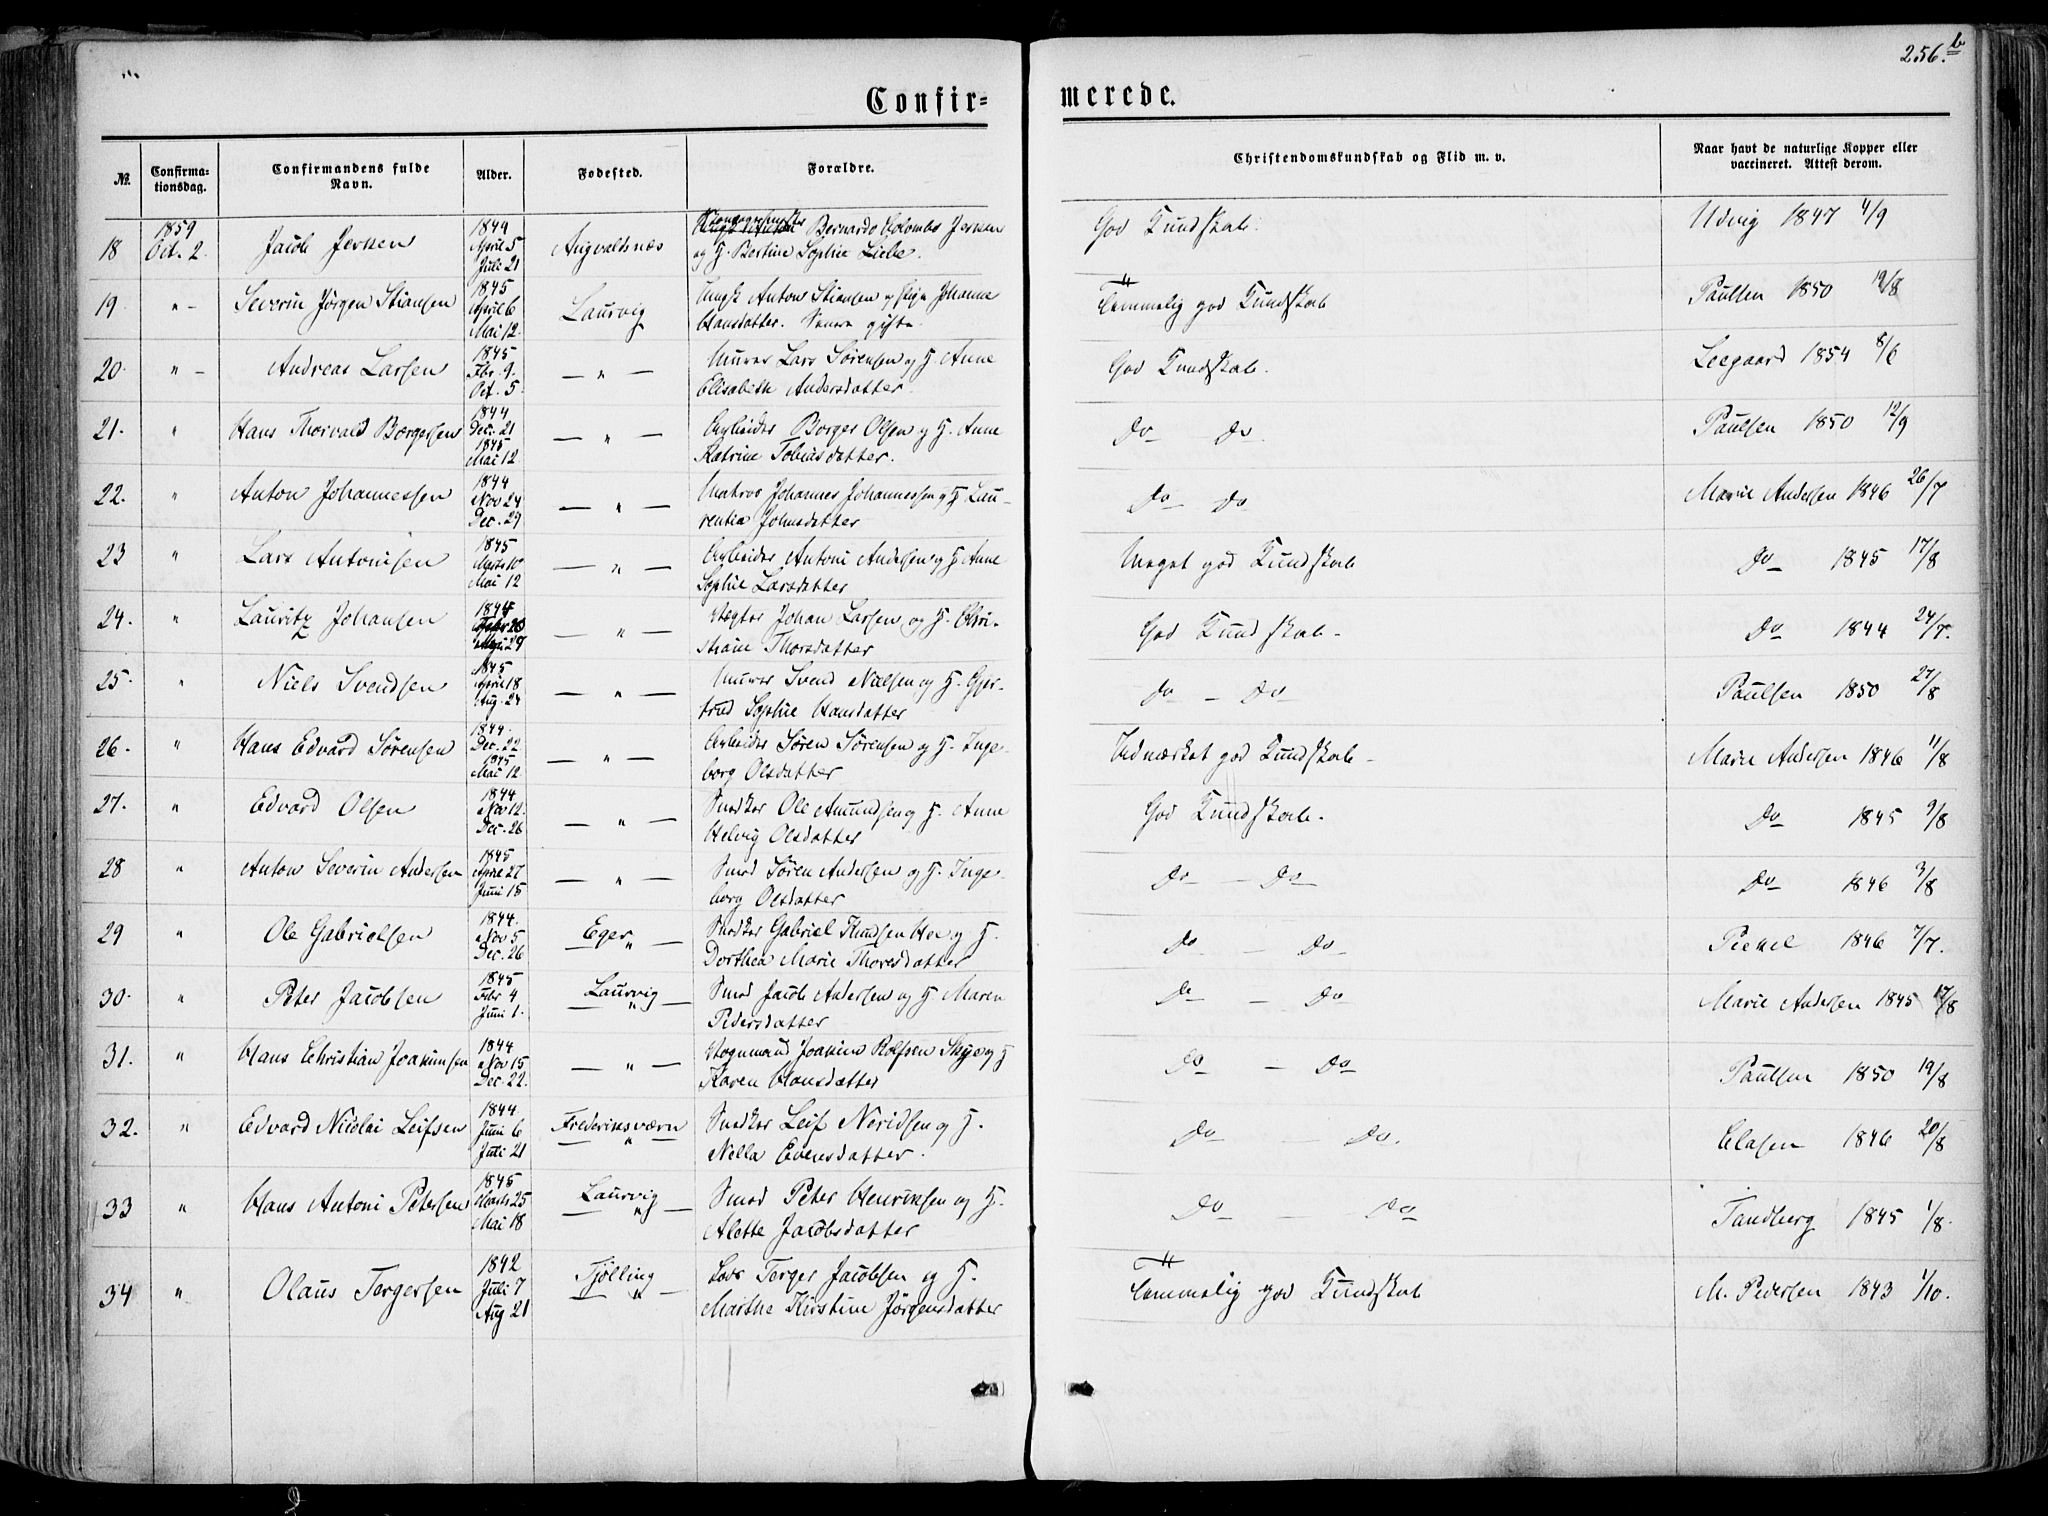 256.b
Confir=
merede.
No.
Confirma=
tionsdag.
Confirmandens fulde
Navn.
Alder.
Fødested.
Forældre.
Christendomskundskab og Flid m. v.
Naar havt de naturlige Kopper eller
vaccineret. Attest derom.
1859
18 Oct. 2. Jacob Jersen 1844 April 5 Juli 21 Augvaldsnæs Bernardo Colombo Jersen
og H. Bertine Sophie Liebe. God Kundskab. Udvig 1847 4/9
19 " - Severin Jörgen Stiansen 1845 April 6 Mai 12. Laurvig Ungk Anton Stiansen og Pige Johanne
Hansdatter. Senere gifte. Temmelig god Kundskab Paulsen 1850 19/8
20 " - Andreas Larsen 1845 Fbr. 9. Oct. 5. — " — Murer Lars Sörensen og H. Anne
Elisabeth Andersdatter. God Kundskab. Leegaard 1854 8/6
21. " Hans Thorvald Borgersen 1844 Dec. 21 1845 Mai 12. — " — Arbeider Borger Olsen og H. Anne
Katrine Tobiasdatter. Do Do Paulsen 1850 12/9
22. " Anton Johannessen 1844 Nov 24 Dec. 29 — " — Matros Johannes Johannessen og H. Lau-
rentia Johnsdatter Do Do Marie Andersen 1846 26/7
23 " Lars Antonisen 1845 Marts 10 Mai 12 — " — Arbeider Antoni Andersen og H. Anne
Sophie Larsdatter Meget god Kundskab Do 1845 17/8
24. " Lauritz Johansen 1844 — " — Vægter Johan Larsen og H. Chri-
stiane Thorsdatter God Kundskab - Do 1844 24/7.
25. " Niels Svendsen 1845 April 18 Aug. 24 — " — Murer Svend Nielsen og H. Gjer-
trud Sophie Hansdatter Do - Do Paulsen 1850 27/8
26. " Hans Edvard Sörensen 1844. Dec. 22 1845 Mai 12. — " — Arbeider Sören Sörensen og H. Inge-
borg Olsdatter Udmærket god Kundskab - Marie Andersen 1846 11/8
27. " Edvard Olsen 1844 Nov 12. Dec. 26 — " — Snedker Ole Amundsen og H. Anne
Helvig Olsdatter God Kundskab. Do 1845 9/8
28 " Anton Severin Andersen 1845 April 27 Juni 15 — " — Smed Sören Andersen og H. Inge-
borg Olsdatter Do - Do Do 1846 3/8
29 " Ole Gabrielsen 1844. Nov 5 Dec. 26 Eger Snedker Gabriel Knudsen Hoe og H.
Dorthea Marie Thoresdatter Do - Do 1846 7/7.
30. " Peter Jacobsen 1845 Fbr 4 Juni 1. Laurvig Smed Jacob Andersen og H. Maren
Pedersdatter Do - Do Marie Andersen 1845 17/8
31. " Hans Christian Joakimsen 1844 Nov 15 Dec. 22. — " — Vognmand Joakim Rolfsen Skye og H
Karen Hansdatter Do - Do Paulsen 1850 19/8
32. " Edvard Nicolai Leifsen 1844. Juni 6 Juli 21 Frederiksværn Snedker Leif Neridsen og H.
Nella Evensdatter. Do - Do. Clasen 1846 20/8
33 " Hans Antoni Petersen 1845 Marts 25 Mai 18 Laurvig Smed Peter Henriksen og H.
Alette Jacobsdatter Do - Do Tandberg 1845 1/8.
34 " Olaus Tergersen 1842 Juli 7 Aug 21 Tjölling Lods Terger Jacobsen og H.
Marthe Kirstine Jörgensdatter Temmelig god Kundskab M. Pedersen 1843 1/10.